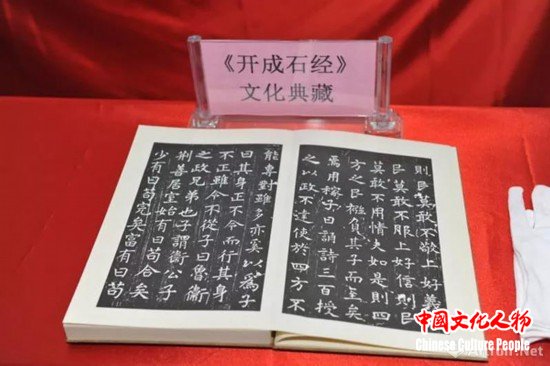 《开成石经》
文化典藏
則民莫敢不敬上好義則
民莫敢不服上好信則民
莫敢不用情夫如是則四
方之民襁負其子而至矣
焉用稼子曰誦詩三百授
之以政不達使於四方不
能專對雖多亦奚以爲子
曰其身正不令而行其身
不正雖令不從子曰魯衛
之政兄弟也子謂衛公子
荆善居室始有曰苟合矣
少有曰苟完矣富有曰苟
中国文化人物
Chinese Culture People